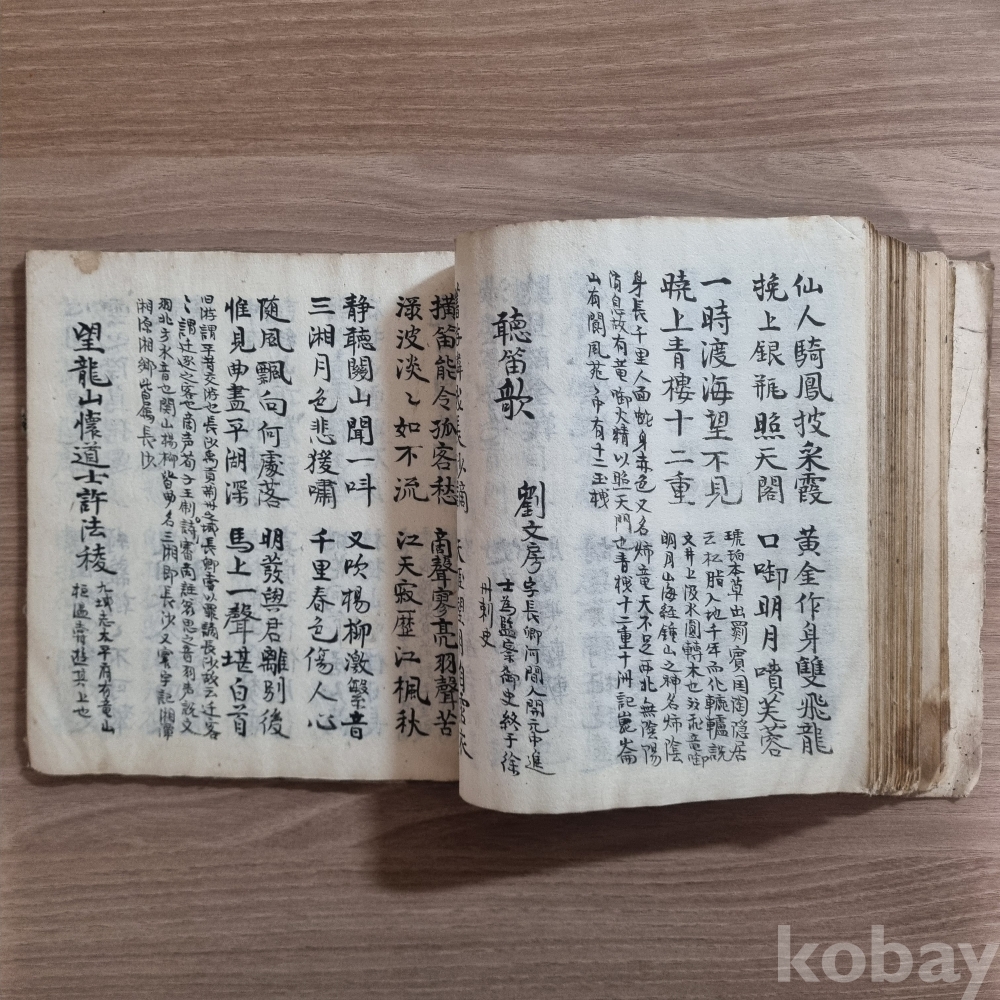 仙人騎鳳披采霞 黄金作身雙飛龍
晩上銀甁照天閣 口啣明月噴芙蓉
一時渡海望不見
曉上青樓十二重
琥珀本草出罽賓国陶隐居
云松脂入地千年而化轆轤説
文井上汲水圓轉木也
明月山海経鍾山之神名烛陰
身長千里人面蛇身赤色又名烛竜天不足西北無陰陽
消息故有竜啣火精以照天門也青樓十二重十洲記崑崙
山有閬風苑
聽笛歌 劉文房 字長卿河間人開元中進
士為監察御史終于徐
州刺史
横笛能令孤客愁
渌波淡〻如不流
啇聲寥亮羽聲苦
江天寂歷江楓秋
静聽關山聞一呌
三湘月色悲猨嘯
又吹楊柳激繁音
千里春色傷人心
随風飄向何處落
惟見曲盡平湖深
明發與君離別後
馬上一聲堪白首
旧游謂平昔交游也長沙
三湘即長沙又寰宇記湘潭
湘鄉皆属長沙
望龍山懐道士許法稜
kobay